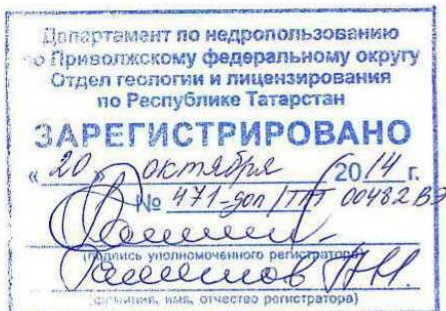 Департамент по недропользованию
по Приволжскому федеральному округу
Отдел геологии и лицензирования
по Республике Татарстан
ЗАРЕГИСТРИРОВАНО
«20» октября 2014 г.
№ 471-доп/ТАТ 00482 ВЭ
(подпись уполномоченного регистратора)
(фамилия, имя, отчество регистратора)